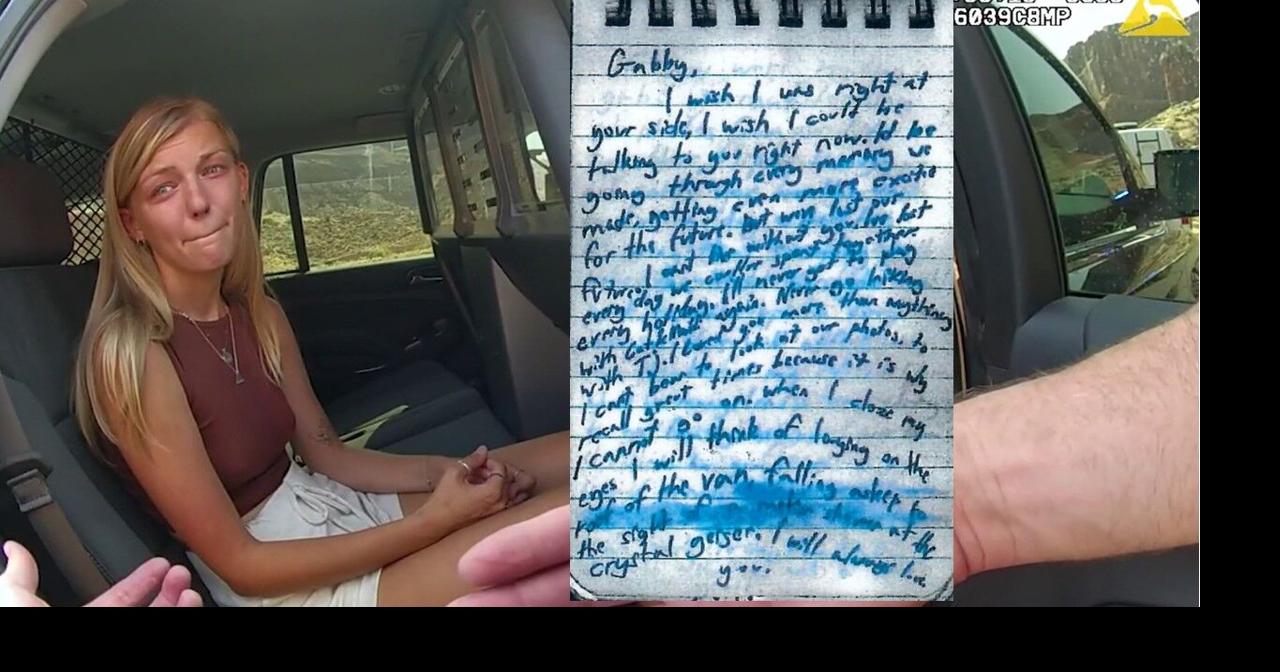 6039C8MP
Gabby,
I wish I was right at
your side, I wish I could be
talking to you right now. Id be
going through every memory we
made, getting even more excited
for the future. But we lost our
future. I cant without you. Ive lost
every day we spent together
every holiday. Ill never get to play
with again. Never go hiking
with TJ. I loved you more than anything
I cant bear to look at our photos, to
recall great times because it is why
I cannot go on. When I close my
eyes I will think of laughing on the
roof of the van, falling asleep to
the sight of at the
crystal geiser. I will always love
you.